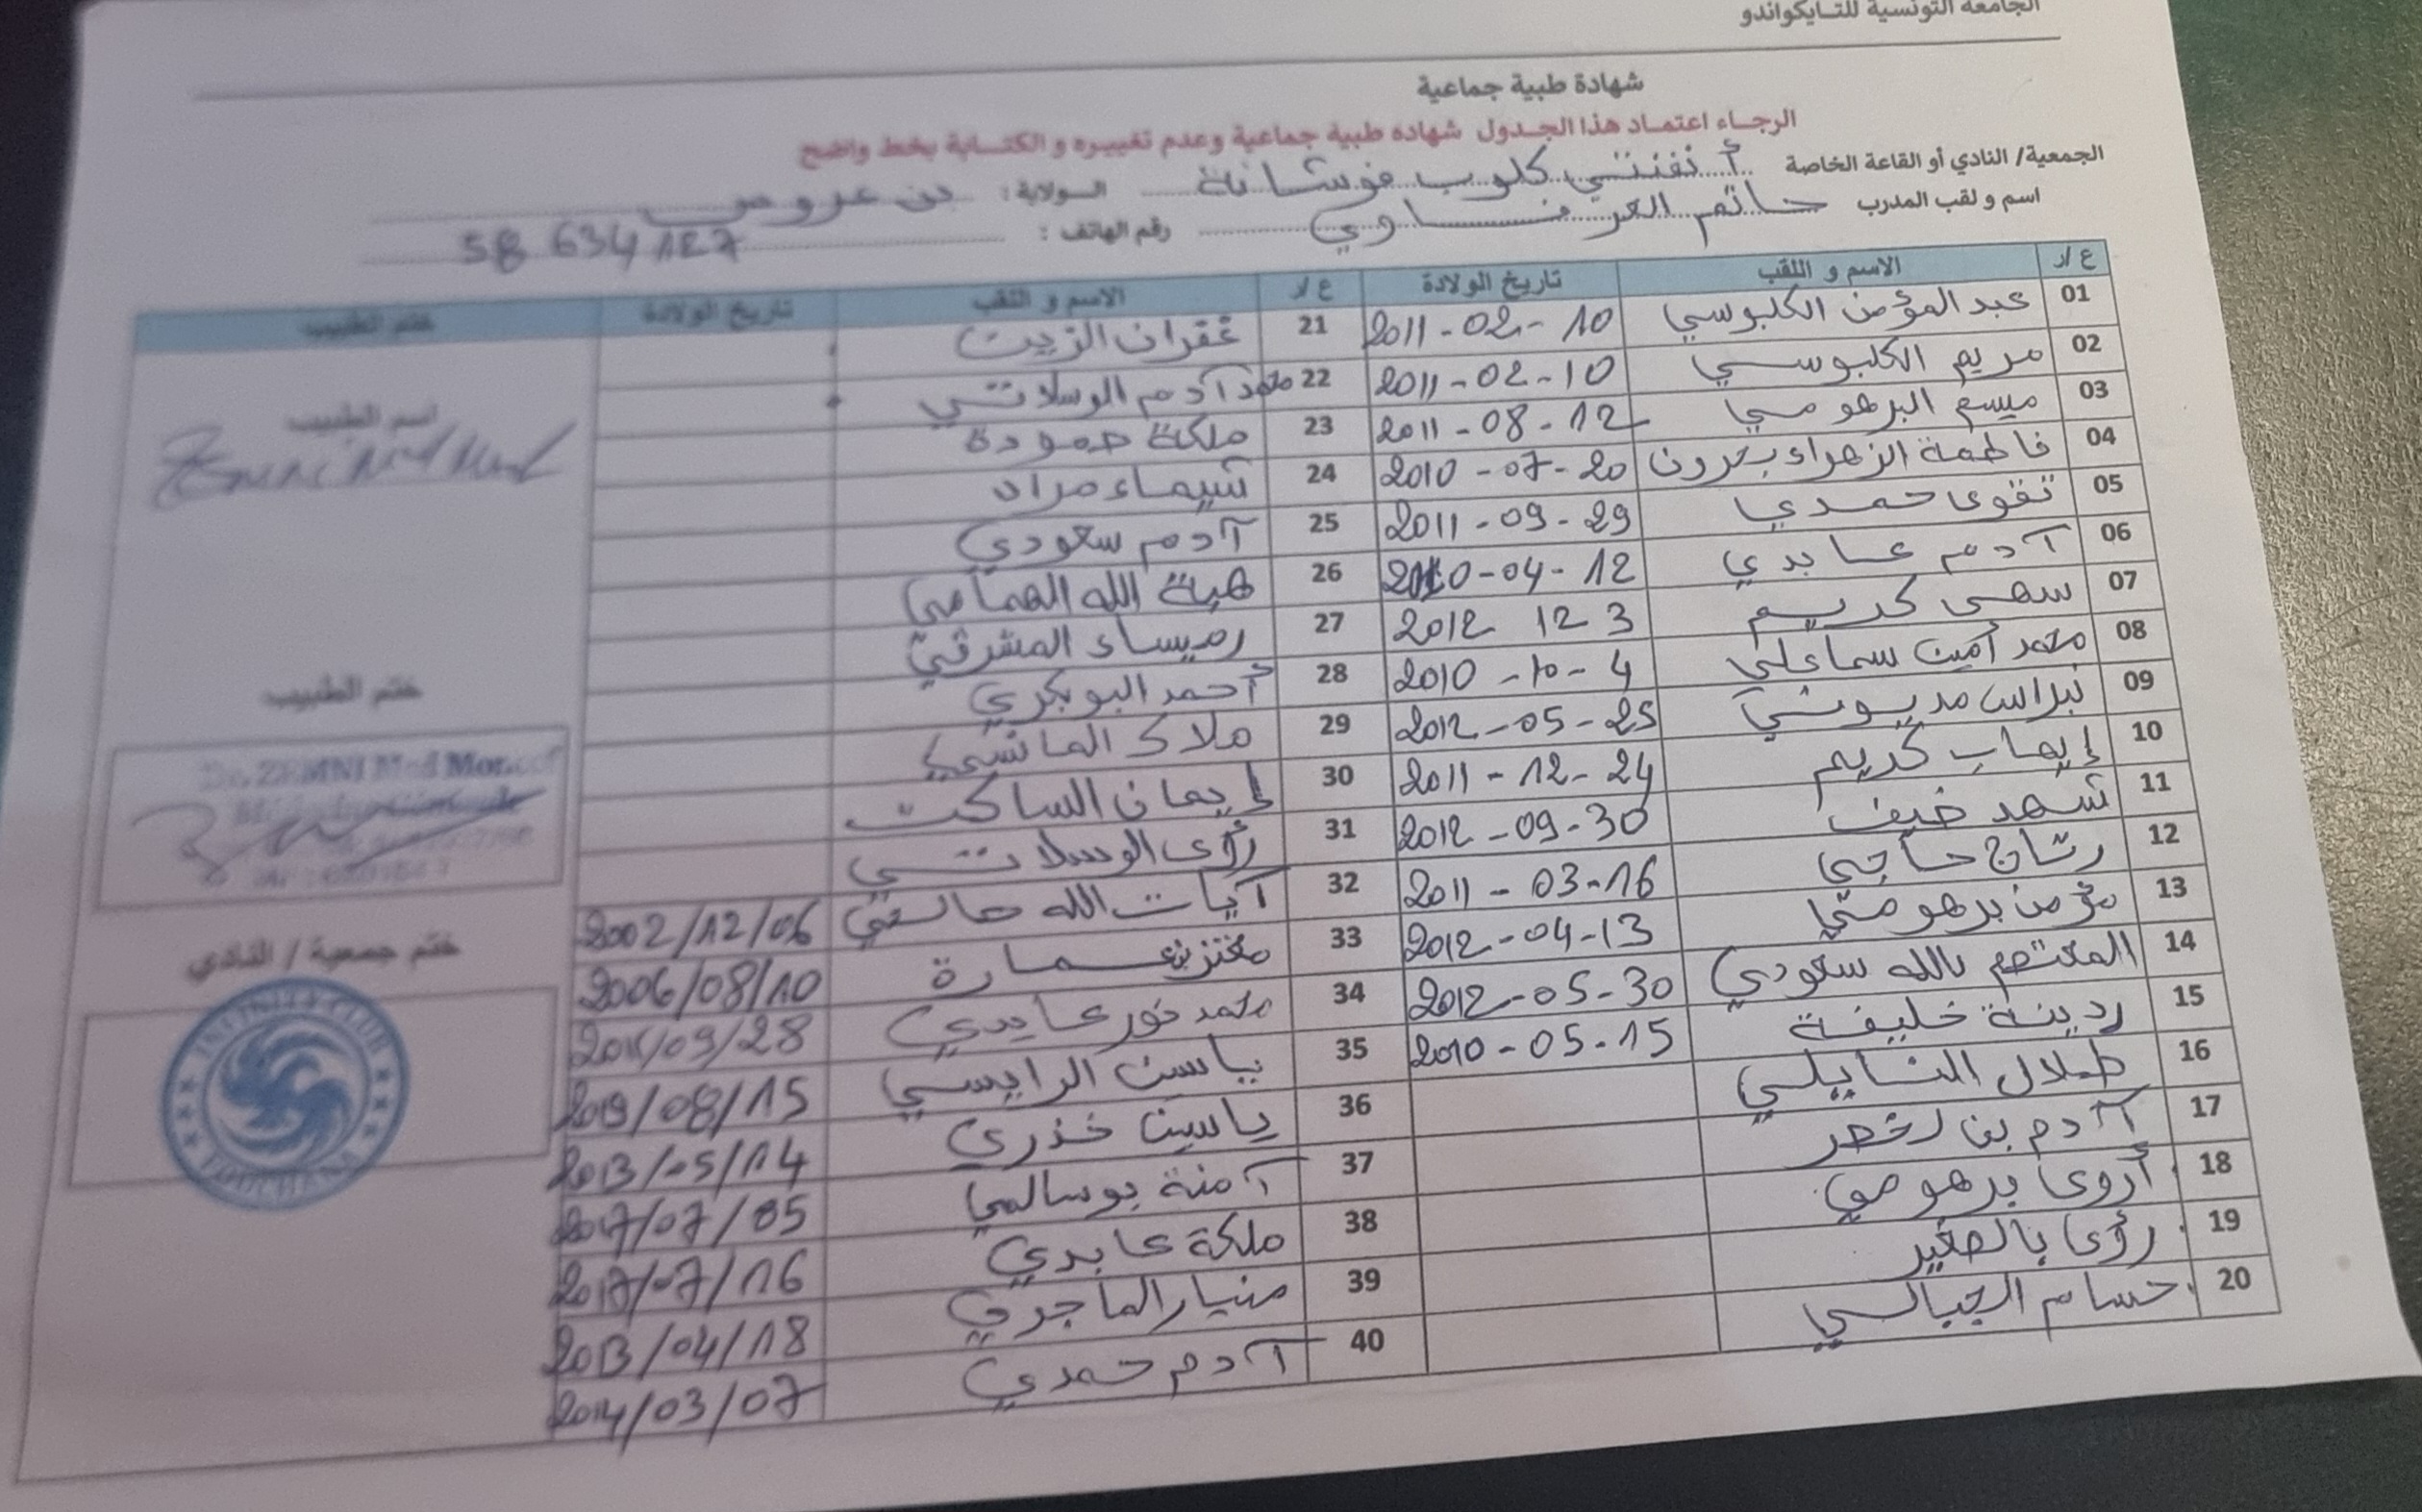 الجامعة التونسية للتايكواندو
شهادة طبية جماعية
الرجاء اعتماد هذا الجدول شهاده طبية جماعية وعدم تغييره و الكتابة بخط واضح
الجمعية/ النادي أو القاعة الخاصة أنفنتي كلوب فوشانة الولاية: بن عروس
اسم و لقب المدرب حاتم العرفاوي رقم الهاتف: 58 634 127
ع/ر الاسم و اللقب تاريخ الولادة ع/ر الاسم و اللقب تاريخ الولادة ختم الطبيب
01 عبد المؤمن الكلبوسي 2011-02-10 21 غفران الزيت
02 مريم الكلبوسي 2011-02-10 22 محمد آدم الوسلاتي
03 ميسم البرهومي 2011-08-12 23 ملكة حمودة
04 فاطمة الزهراء 2010-07-20 24 شيماء مراد
05 تقوى حمدي 2011-09-29 25 آدم سعودي
06 آدم عابدي 2010-04-12 26 هبة الله الهمامي
07 سهى كريم 2012 12 3 27 رميساء المشرقي
08 محمد أمين سماعلي 2010-10-4 28 أحمد البوبكري
09 نبراس مديوني 2012-05-25 29 ملاك
10 إيهاب كريم 2011-12-24 30 إيمان الساكت
11 شهد ضيف 2012-09-30 31 رؤى الوسلاتي
12 رتاج حاجي 2011-03-16 32 آيات الله 2002/12/06
13 مؤمن برهومي 2012-04-13 33 معتز بن عمارة 2006/08/10
14 المعتصم بالله سعودي 2012-05-30 34 محمد نور عابدي
15 ردينة خليفة 2010-05-15 35 ياسين الرايسي 2019/08/15
16 طلال النايلي 36 ياسين خذري 2013/05/14
17 آدم بن لخضر 37 آمنة بوسالمي 2017/07/05
18 أروى برهومي 38 ملكة عابدي 2017/07/16
19 رؤى بالصغير 39 منيار الماجري 2013/04/18
20 حسام الجبالي 40 آدم حمدي 2014/03/07
اسم الطبيب
ختم الطبيب
Dr. ZEMNI Med Moncef
ختم جمعية / النادي
INFINITY CLUB
FOUCHANA